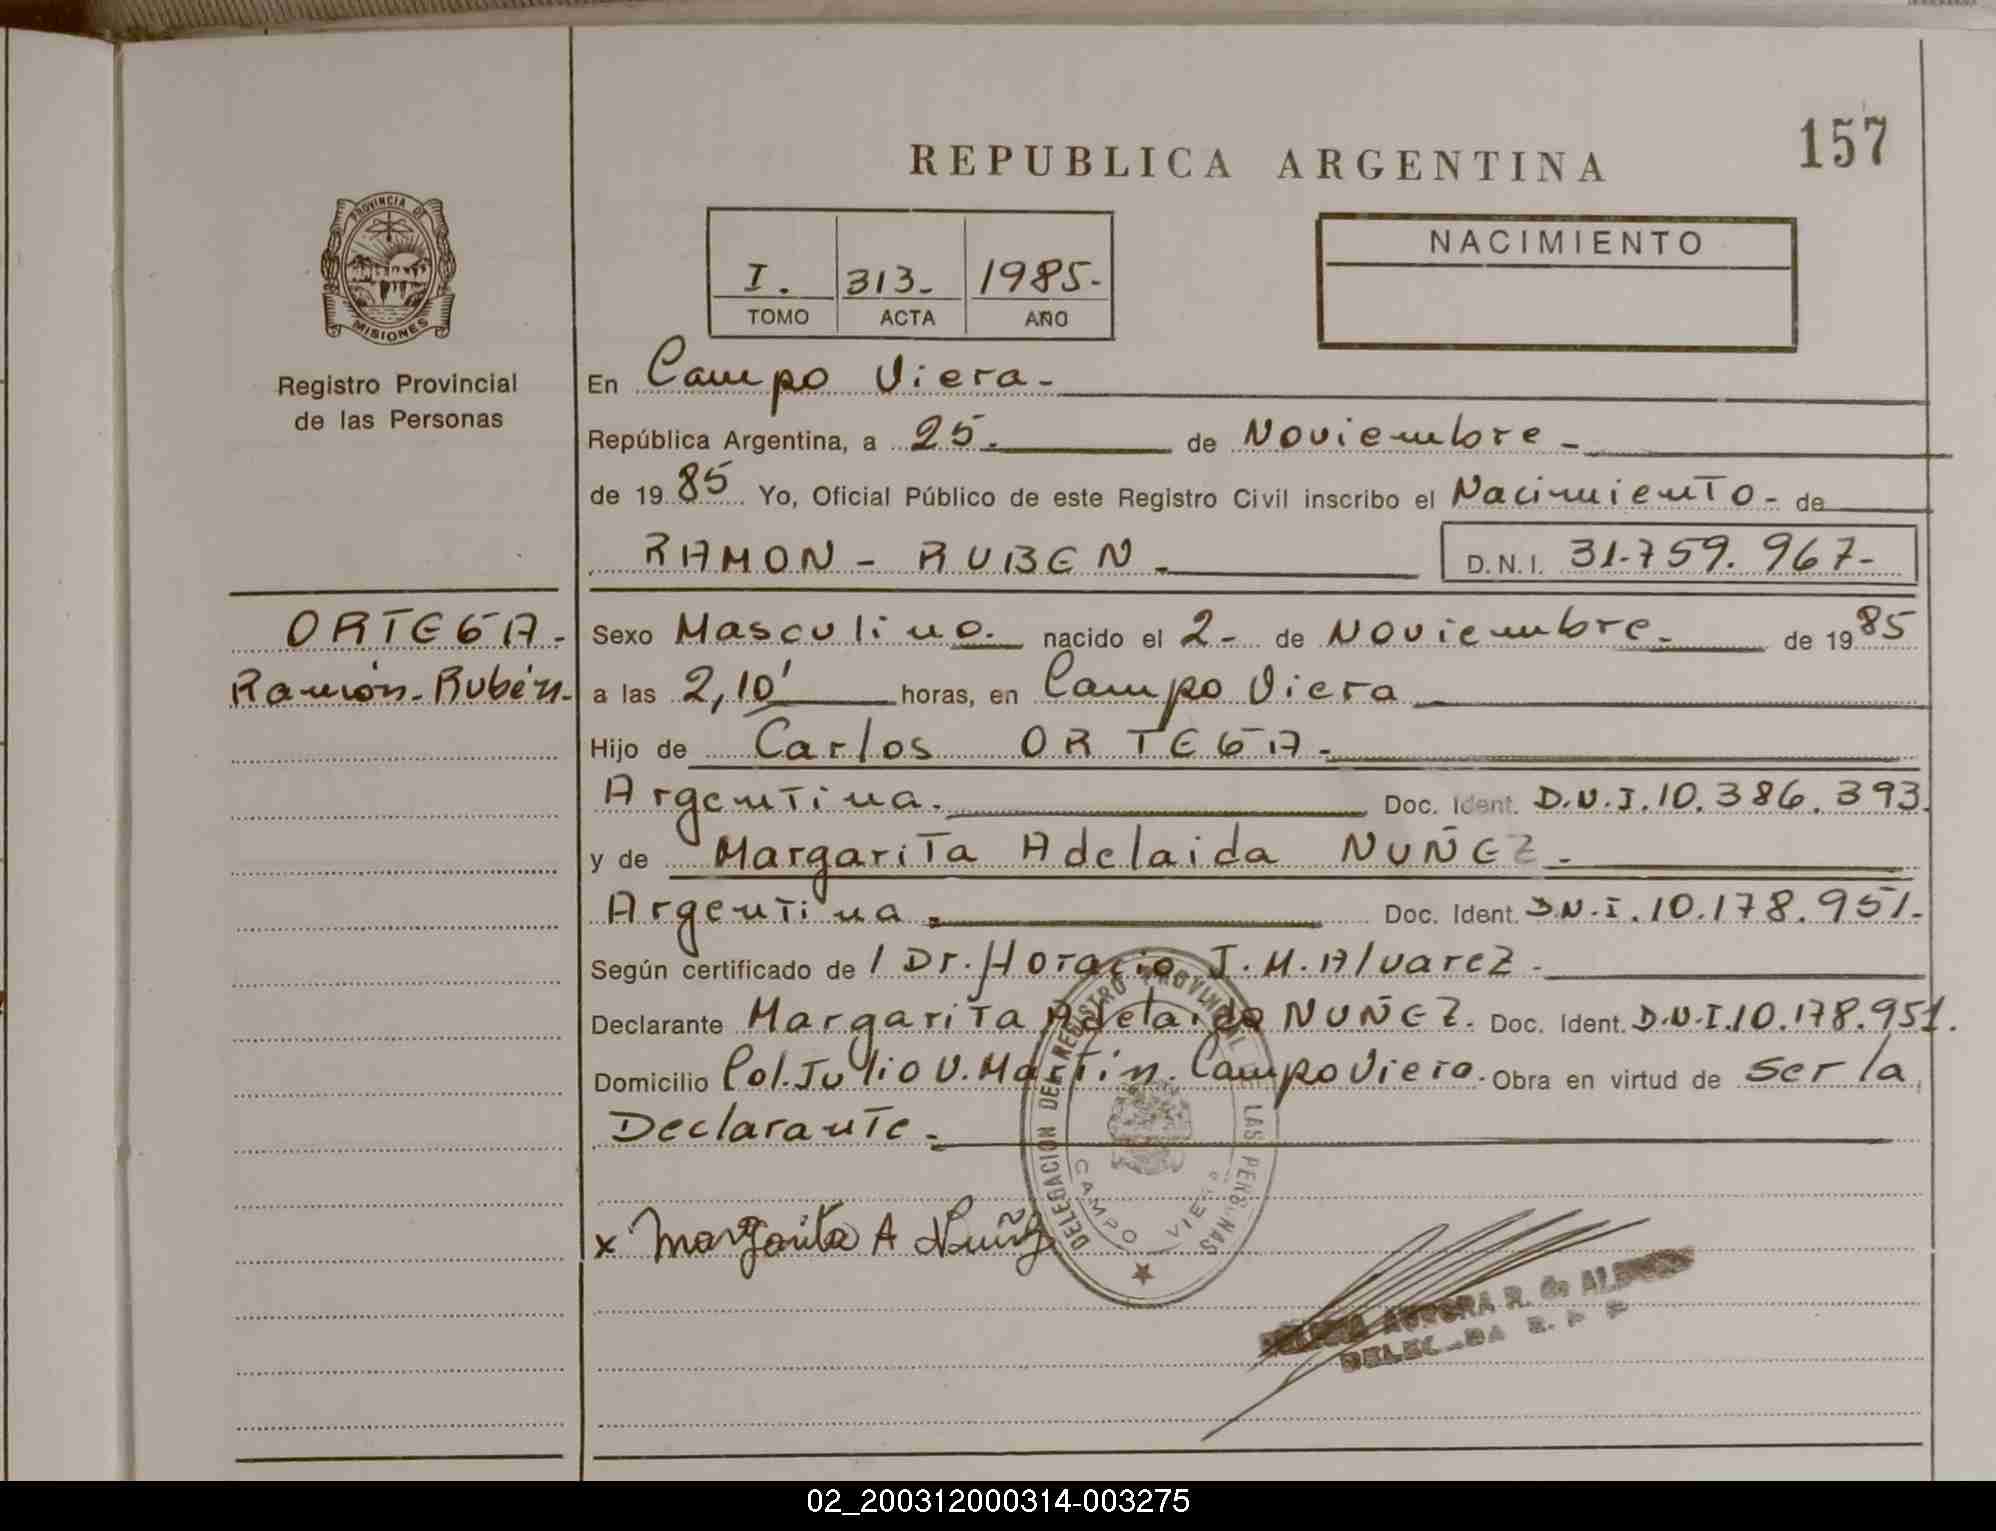 157
REPUBLICA ARGENTINA
PROVINCIA DE
MISIONES
Registro Provincial
de las Personas
NACIMIENTO
I. 313- 1985-
TOMO ACTA AÑO
En Campo Viera-
República Argentina, a 25. de Noviembre-
de 1985 Yo, Oficial Público de este Registro Civil inscribo el Nacimiento- de
RAMON - RUBEN. D.N.I. 31.759.967-
ORTEGA-
Ramón-Rubén-
Sexo Masculino. nacido el 2- de Noviembre. de 1985
a las 2,10' horas, en Campo Viera
Hijo de Carlos ORTEGA-
Argentina. Doc. Ident. D.N.I.10.386.393.
y de Margarita Adelaida NUÑEZ-
Argentina. Doc. Ident. D.N.I.10.178.951.
Según certificado de / Dr. Horacio J.M.Alvarez-
Declarante Margarita Adelaida NUÑEZ. Doc. Ident. D.N.I.10.178.951.
Domicilio Col.Julio U.Martín.Campo Viera. Obra en virtud de ser la
Declarante-
DELEGACION DEL REGISTRO PROVINCIAL DE LAS PERSONAS
CAMPO VIERA
x Margarita A Nuñez
AURORA R. de
DELEGADA R. P. P.
02_200312000314-003275